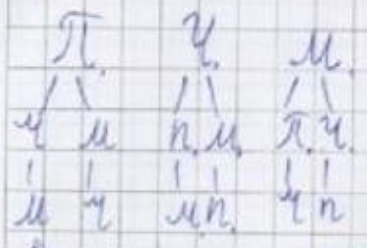 П. Ч. М.
ч м п. м. П. Ч.
м ч м. п. ч п